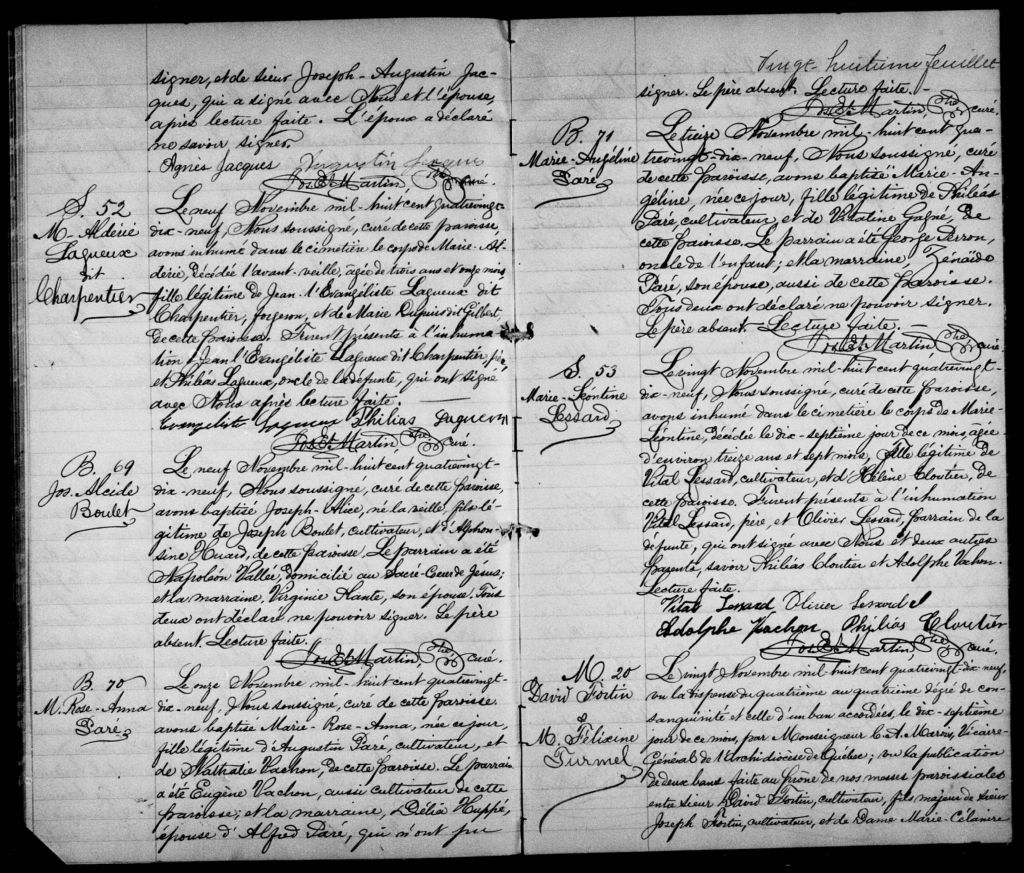 signer, et de sieur Joseph-Augustin Jac-
ques, qui a signé avec Nous et l'épouse,
après lecture faite. L'époux a déclaré
ne savoir signer.
Agnès Jacques Augustin Jacques
Jos. Et. Martin, Ptre curé.
S. 52
M. Aldérie
Lagueux
dit
Charpentier
Le neuf Novembre mil-huit cent quatrevingt-
dix-neuf, Nous soussigné, curé de cette paroisse,
avons inhumé dans le cimetière le corps de Marie-Al-
dérie, décédée l'avant-veille, âgée de trois ans et onze mois,
fille légitime de Jean l'Evangéliste Lagueux dit
Charpentier, forgeron, et de Marie Dupuis dit Gilbert,
de cette paroisse. Furent présents à l'inhuma-
tion Jean l'Evangéliste Lagueux dit Charpentier, père,
et Philéas Lagueux, oncle de la défunte, qui ont signé
avec Nous après lecture faite.
Evangeliste Lagueux Philias Lagueux
Jos. Et. Martin, Ptre curé.
B. 69
Jos. Alcide
Boulet
Le neuf Novembre mil-huit cent quatrevingt-
dix-neuf, Nous soussigné, curé de cette paroisse,
avons baptisé Joseph-Alice, né la veille, fils lé-
gitime de Joseph Boulet, cultivateur, et d'Alphon-
sine Huard, de cette paroisse. Le parrain a été
Napoléon Vallée, domicilié au Sacré-Coeur de Jésus;
et la marraine, Virginie Plante, son épouse. Tous
deux ont déclaré ne pouvoir signer. Le père
absent. Lecture faite.
Jos. Et. Martin, Ptre curé.
B. 70
M. Rose-Anna
Paré
Le onze Novembre mil-huit cent quatrevingt-
dix-neuf, Nous soussigné, curé de cette paroisse
avons baptisé Marie-Rose-Anna, née ce jour,
fille légitime d'Augustin Paré, cultivateur, et
de Nathalie Vachon, de cette paroisse. Le parrain
a été Eugène Vachon, aussi cultivateur de cette
paroisse; et la marraine, Délia Huppé,
épouse d'Alfred Paré, qui n'ont pu
Vingt huitième feuillet
signer. Le père absent. Lecture faite.
Jos. Et. Martin, Ptre curé,
B. 71
Marie-Angéline
Paré
Le treize Novembre mil-huit cent qua-
trevingt-dix-neuf, Nous soussigné, curé
de cette paroisse, avons baptisé Marie-An-
géline, née ce jour, fille légitime de Philéas
Paré, cultivateur, et de Valentine Gagné, de
cette paroisse. Le parrain a été George Perron,
oncle de l'enfant; et la marraine Zénaïde
Paré, son épouse, aussi de cette paroisse.
Tous deux ont déclaré ne pouvoir signer.
Le père absent. Lecture faite.
Jos. Et. Martin, Ptre curé.
S. 53
Marie-Léontine
Lessard
Le vingt Novembre mil-huit cent quatrevingt-
dix-neuf, Nous soussigné, curé de cette paroisse,
avons inhumé dans le cimetière le corps de Marie-
Léontine, décédée le dix-septième jour de ce mois, âgée
d'environ treize ans et sept mois, fille légitime de
Vital Lessard, cultivateur, et d'Hélène Cloutier, de
cette paroisse. Furent présents à l'inhumation
Vital Lessard, père, et Olivier Lessard, parrain de la
défunte, qui ont signé avec Nous et deux autres
parents, savoir Philéas Cloutier et Adolphe Vachon.
Lecture faite.
Vital Lesard Olivier Lesard
Adolphe Vachon Philias Cloutier
Jos. Et. Martin, Ptre curé.
M. 20
David Fortin
&
M. Félicine
Turmel
Le vingt Novembre mil huit cent quatrevingt-dix-neuf,
vu la dispense du quatrième au quatrième dégré de con-
sanguinité et celle d'un ban accordées, le dix-septième
jour de ce mois, par Monseigneur C. A. Marois, Vicaire-
Général de l'Archidiocèse de Québec; vu la publication
de deux bans faite au prône de nos messes paroissiales
entre sieur David Fortin, cultivateur, fils majeur de sieur
Joseph Fortin, cultivateur, et de Dame Marie-Célanire